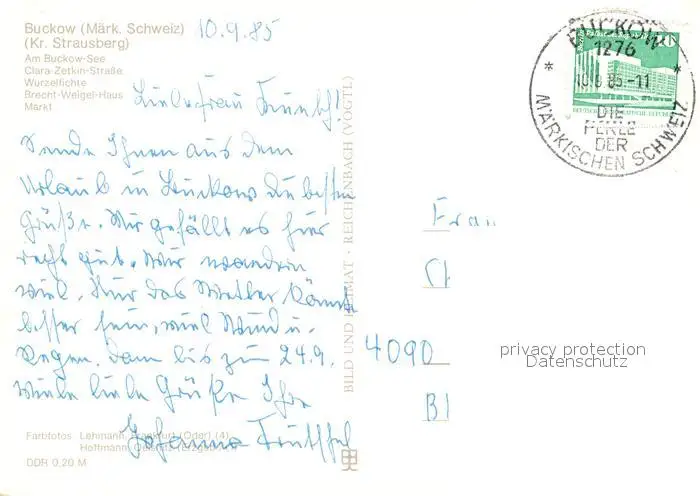 Buckow (Märk. Schweiz)
(Kr. Strausberg)
Am Buckow-See
Clara-Zetkin-Straße
Wurzelfichte
Brecht-Weigel-Haus
Markt
10.9.85
Liebe Frau
Sende Ihnen aus dem
Urlaub in Buckow die besten
Grüße. Wir gefällt es hier
recht gut. Wir wandern
viel. Nur das Wetter könnte
besser sein, viel Wind u.
Regen. bis zum 24.9.
Viele liebe Grüße Ihre
Johanna
Farbfotos Lehmann, Frankfurt (Oder) (4)
Hoffmann, Oelsnitz (Erzgeb.)
DDR 0,20 M
BILD UND HEIMAT · REICHENBACH (VOGTL)
BUCKOW
1276
10.9.85-11
DIE
PERLE
DER
MÄRKISCHEN SCHWEIZ
Frau
4090
privacy protection
Datenschutz